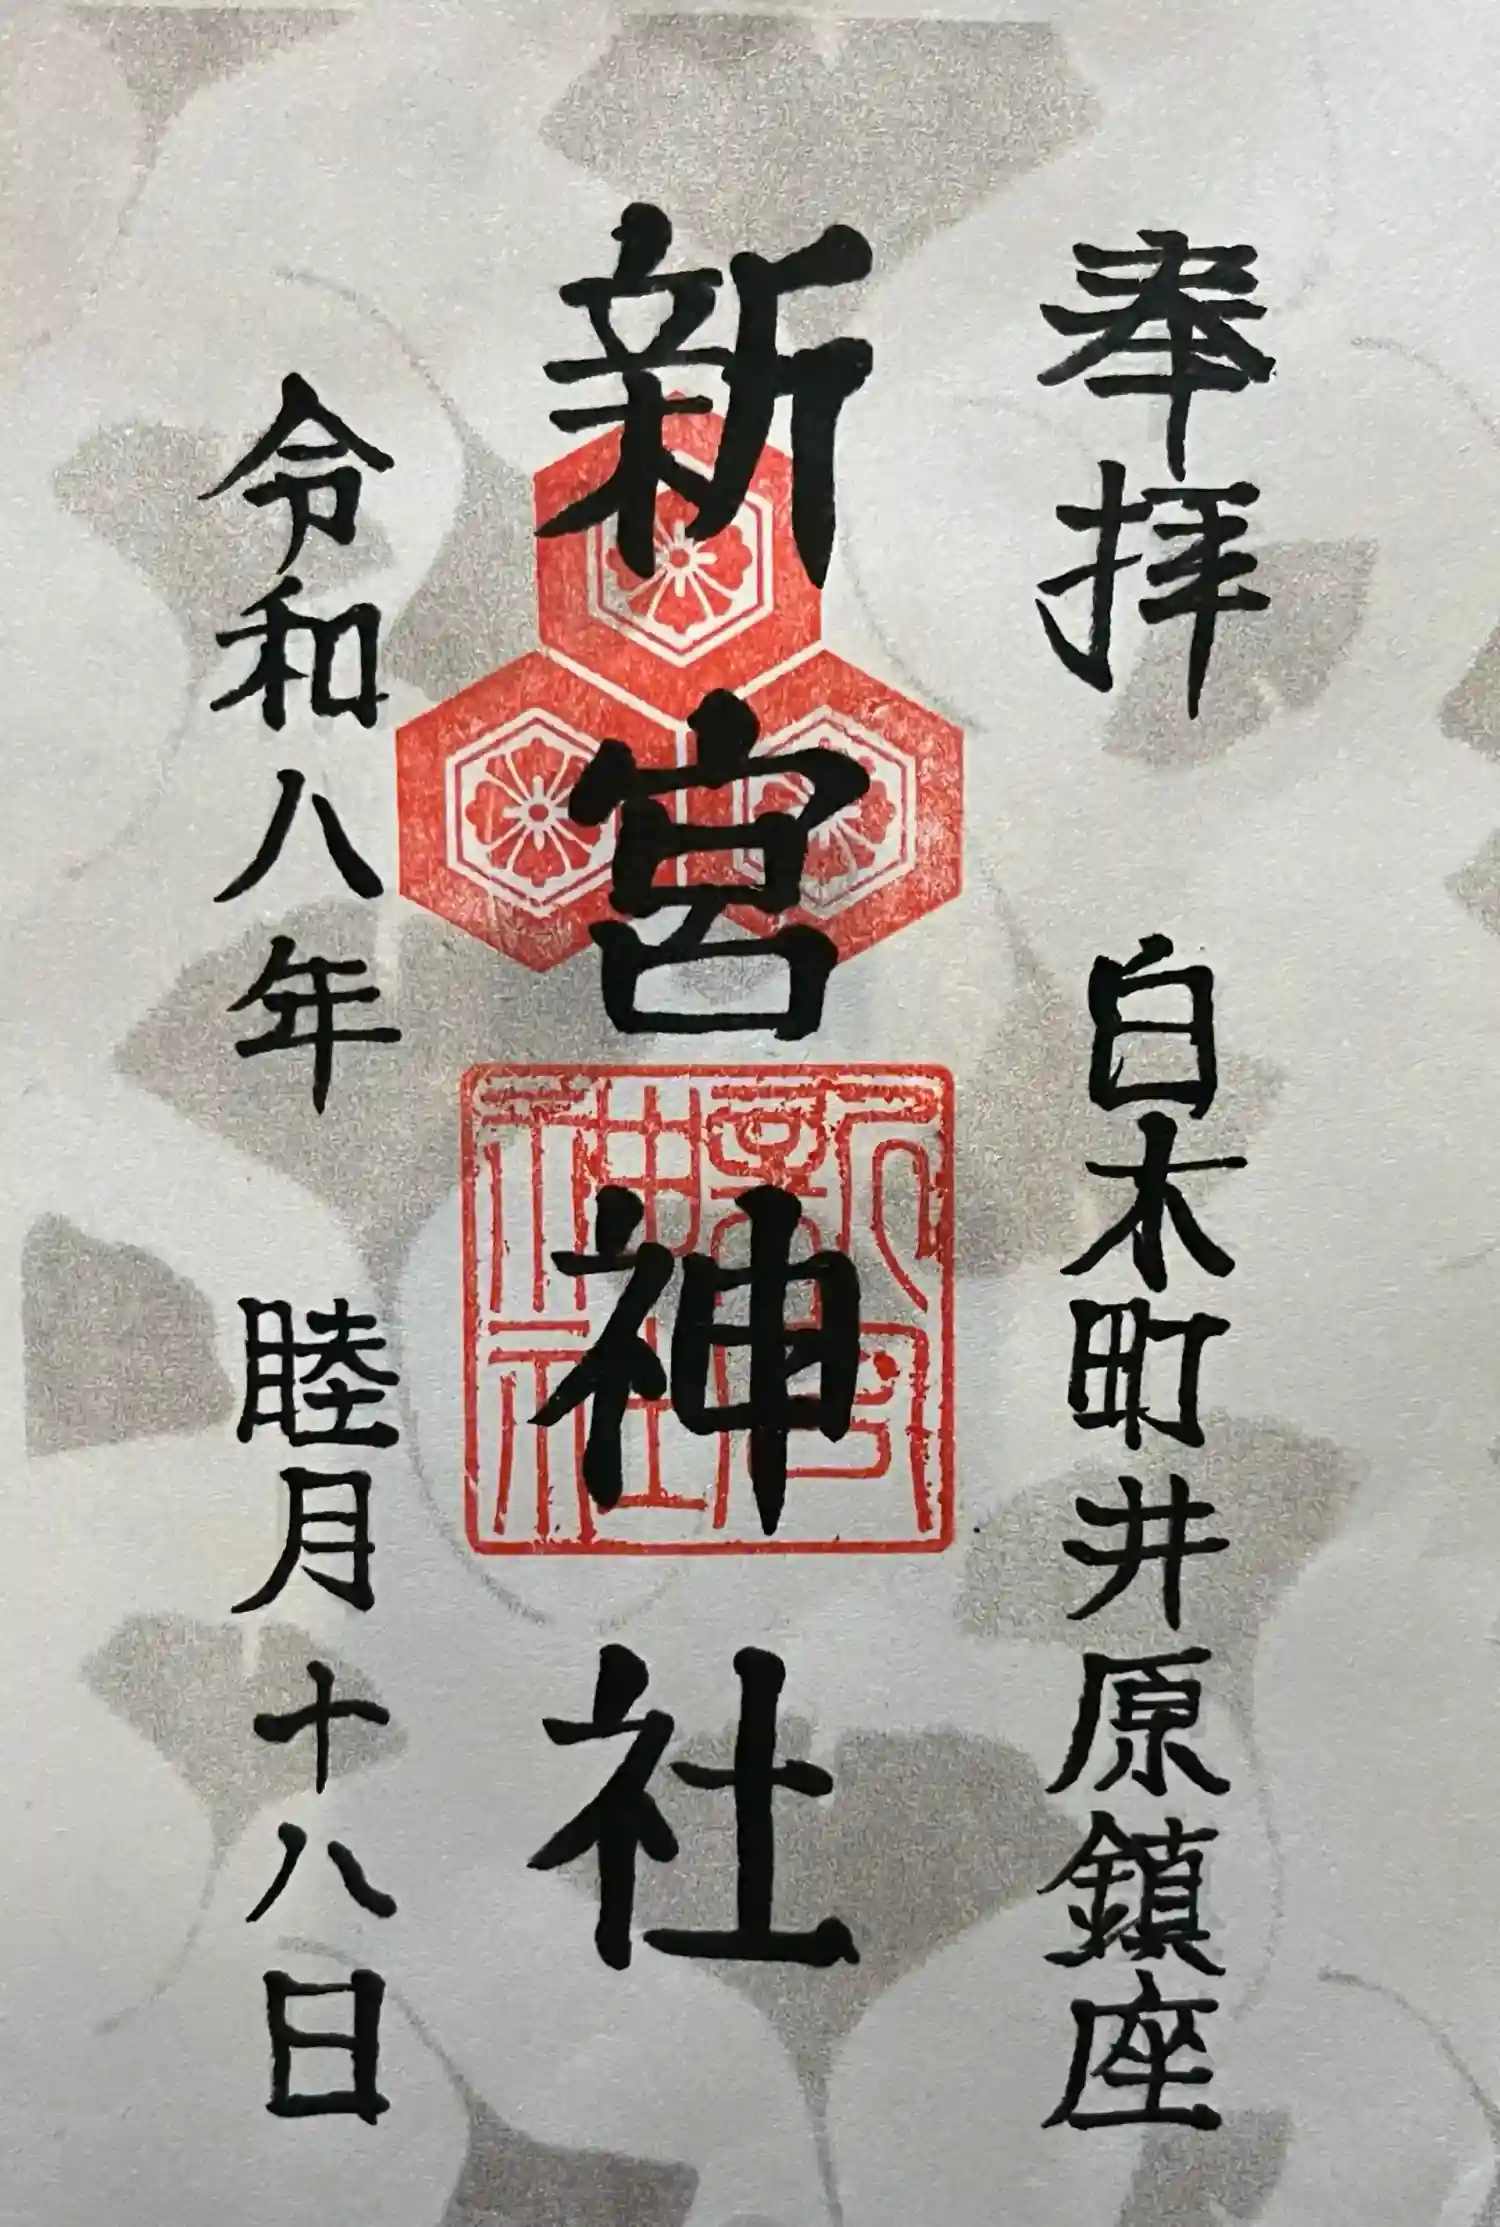 奉拝　白木町井原鎮座
新宮神社
新宮神社
令和八年　睦月十八日